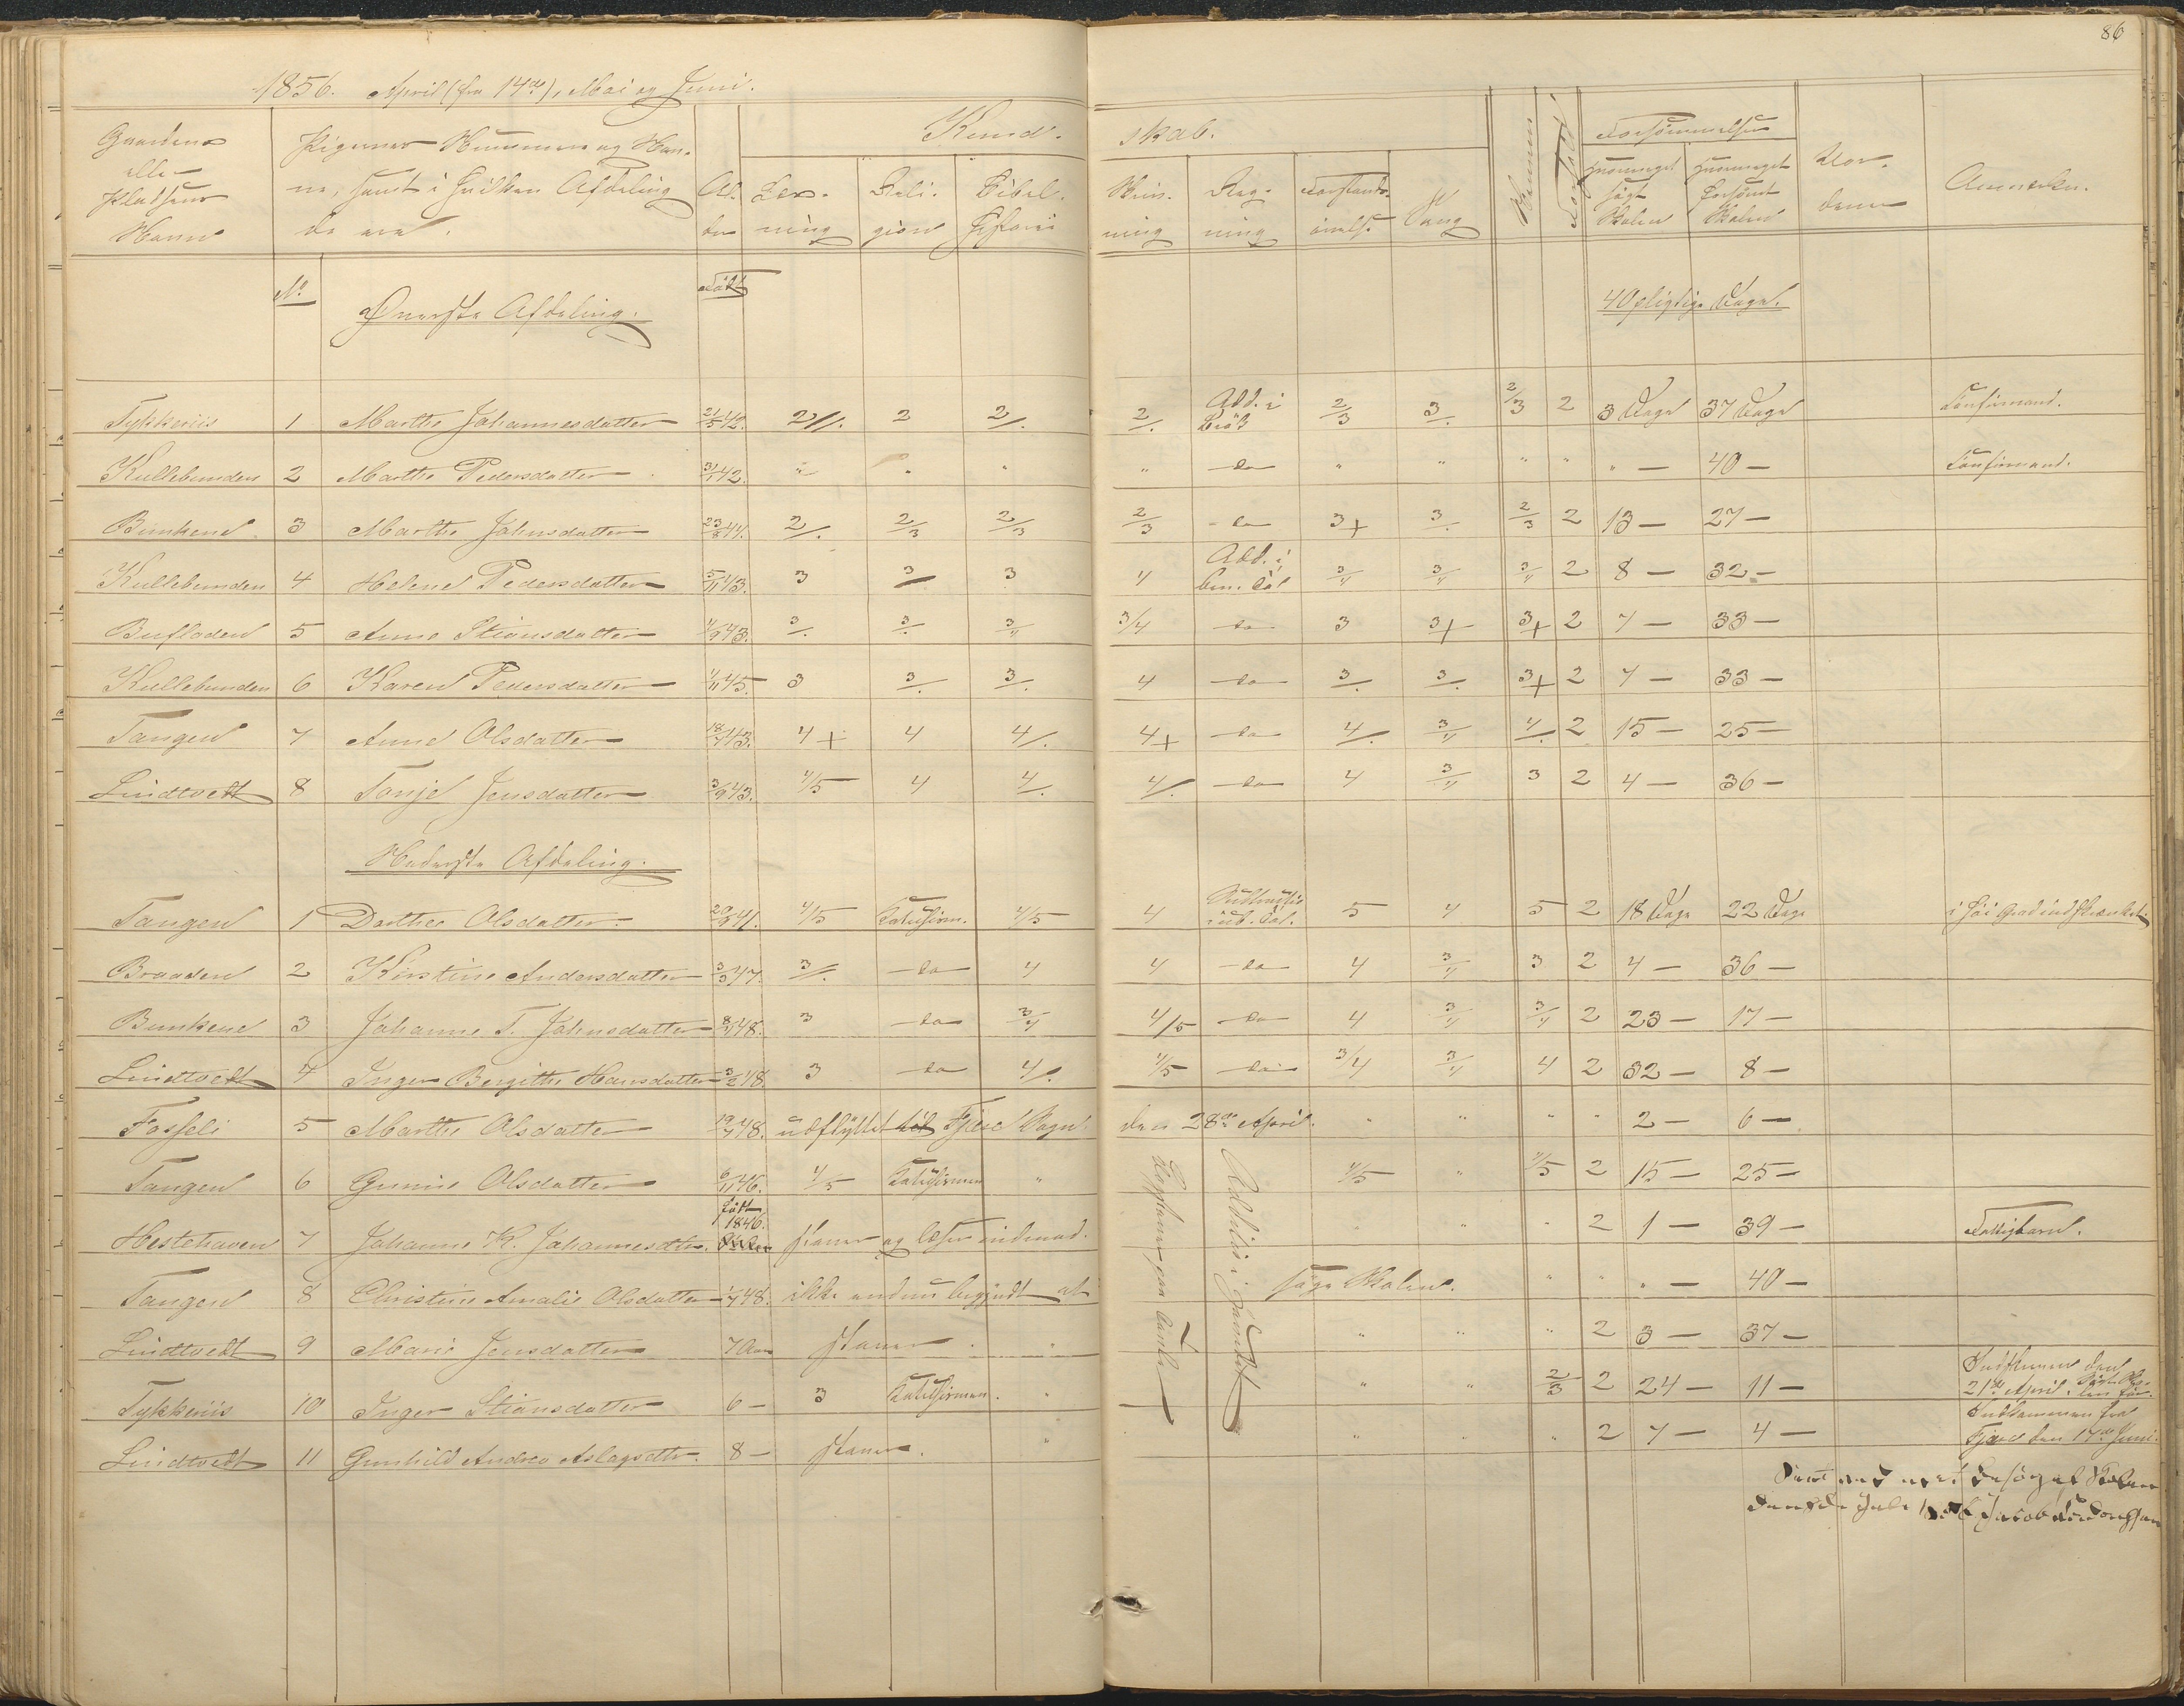 86
1856. April (fra 14de), Mai og Juni.
Gaardens eller Pladsens Navn
Pigernes Nummere og Navne, samt i hvilken Afdeling de ere.
Alder
Kundskab.
Læsning
Religion
Bibelhistorie
Skrivning
Regning
Forstandsøvelse
Sang
Nemme
Forhold
Forsømmelser
hvormeget søgt Skolen
hvormeget forsømt Skolen
Anmærkn.
No
Øverste Afdeling.
Født
40 pligtige Dage.
Tykkeriis 1 Marthe Johannesdatter 21/5 42. 2//. 2 2/. 2/. Add. i Brøk 2/3 3/. 2/3 2 3 Dage 37 Dage Confirmand.
Kullebunden 2 Marthe Pedersdatter 31/1 42. " " " " do " " " " " — 40 — Confirmand.
Bunkene 3 Marthe Johnsdatter 23/8 44. 2/. 2/3 2/3 2/3 do 3+ 3/. 2/3 2 13 — 27 —
Kullebunden 4 Helene Pedersdatter 5/11 43. 3 3/. 3 4 Add. i ben. Tal 3/4 3/4 3/4 2 8 — 32 —
Bufloden 5 Anne Stiansdatter 4/9 43. 3/. 3/. 3/4 3/4 do 3 3+ 3+ 2 7 — 33 —
Kullebunden 6 Karen Pedersdatter 1/11 45. 3 3/. 3/. 4 do 3/. 3/. 3+ 2 7 — 33 —
Tangen 7 Anne Olsdatter 18/7 43. 4+ 4 4/. 4+ do 4/. 3/4 4/. 2 15 — 25 —
Lindtvedt 8 Tonje Jensdatter 3/9 43. 4/5 4 4/. 4/. do 4 3/4 3 2 4 — 36 —
Nederste Afdeling.
Tangen 1 Dorthe Olsdatter 29/9 41. 4/5 Katechism. 4/5 4 5 4 5 2 18 Dage 22 Dage i høi Grad indskrænket.
Braaden 2 Kirstine Andersdatter 3/3 47. 3/. do 4 4 do 4 3/4 3 2 4 — 36 —
Bunkene 3 Johanne T. Johnsdatter 8/11 48. 3 do 3/4 4/5 do 4 3/4 3/4 2 23 — 17 —
Lindtvedt 4 Inger Bergitte Hansdatter 3/2 48. 3 do 4/. 4/5 do 3/4 3/4 4 2 32 — 8 —
Fosseli 5 Marthe Olsdatter 19/7 48. udflyttet til Fjære Sogn. den 28de April. " " " " 2 — 6 —
Tangen 6 Gunine Olsdatter 6/11 46. 4/5 Katechismen " 4/5 " 4/5 2 15 — 25 —
Hestehaven 7 Johanne K. Johannesdtr. født 1846. staver og læser indenad. " " " 2 1 — 39 — Fattigbarn.
Tangen 8 Christine Amalie Olsdatter 1/7 48. ikke endnu begyndt at søge Skolen. " " " — 40 —
Lindtvedt 9 Marie Jensdatter 7 Aar staver. " " " " 2 3 — 37 —
Tykkeriis 10 Inger Stiansdatter 6 — 3 Katechismen. " " " 2/3 2 24 — 11 — Indkommen den 21de April.
Lindtvedt 11 Gunhild Andrea Aslagsdtr. 8 — staver. " " " " 2 7 — 4 — Indkommen fra Fjære den 17de Juni.